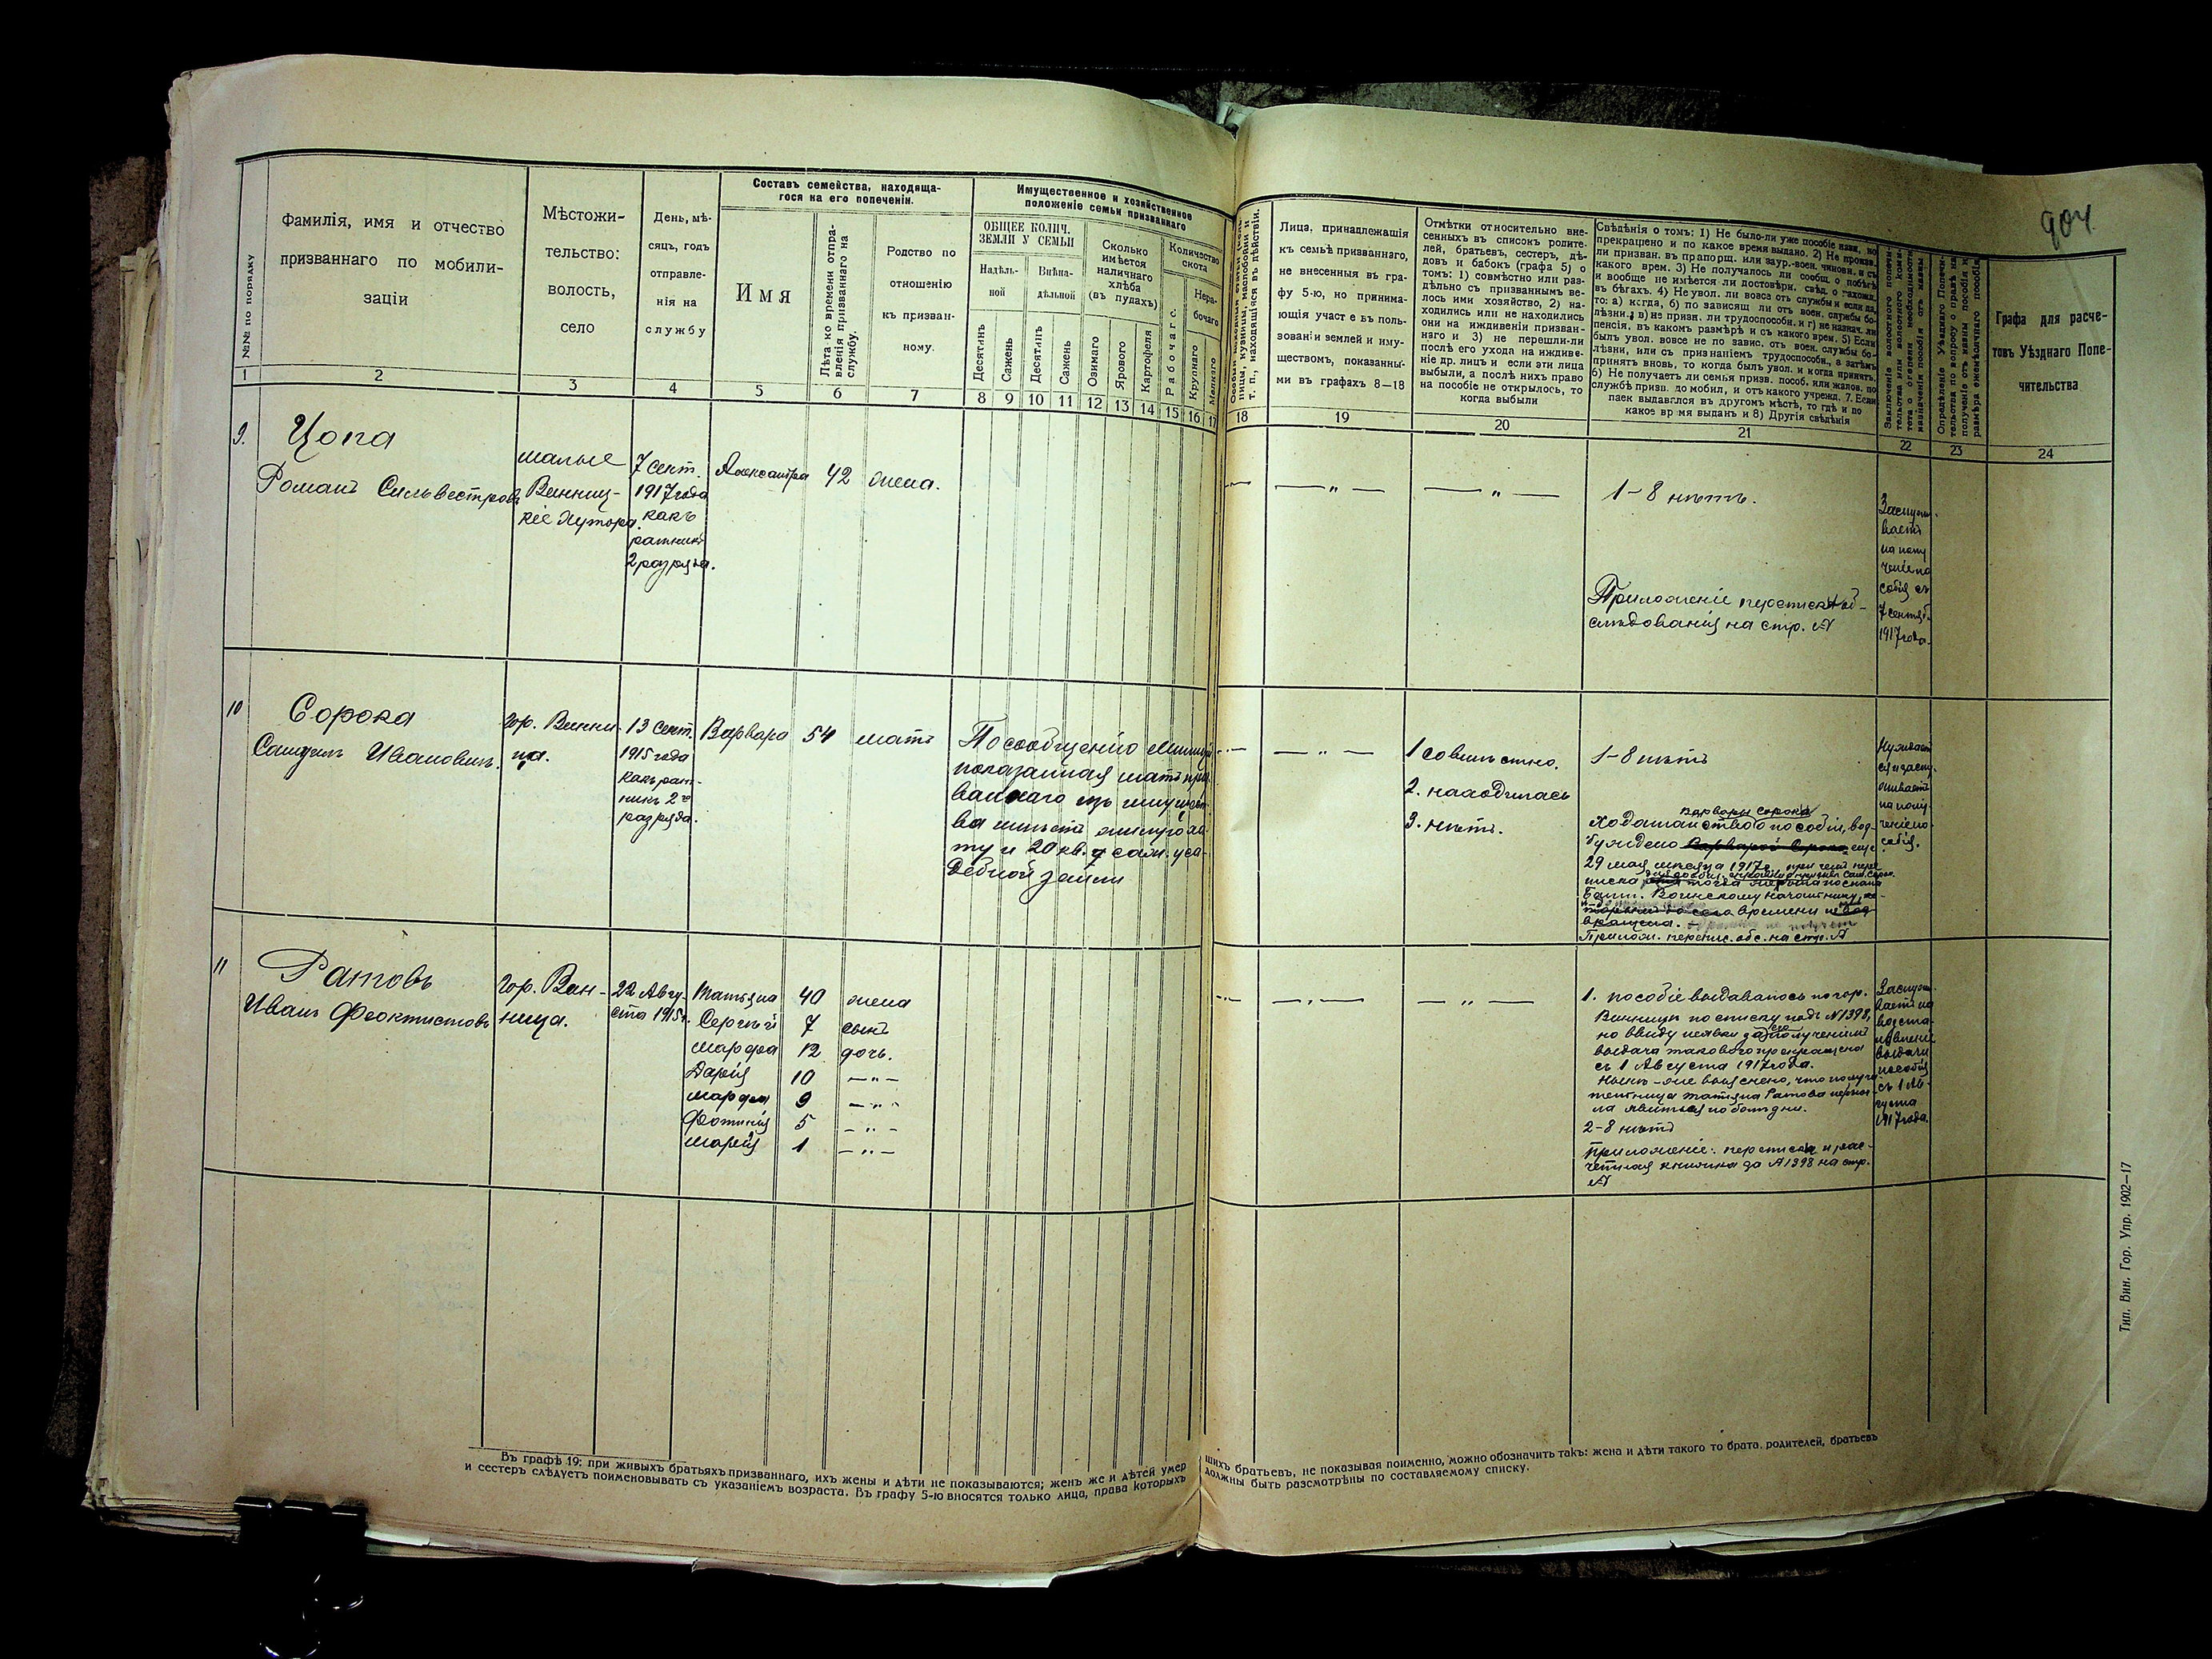 904
№№ по порядку
Фамилія, имя и отчество
призваннаго по мобили-
заціи
Мѣстожи-
тельство:
волость,
село
День, мѣ-
сяцъ, годъ
отправле-
нія на
службу
Составъ семейства, находяща-
гося на его попеченіи.
Имя
Лѣта ко времени отпра-
вленія призваннаго на
службу.
Родство по
отношенію
къ призван-
ному.
Имущественное и хозяйственное
положеніе семьи призваннаго
ОБЩЕЕ КОЛИЧ.
ЗЕМЛИ У СЕМЬИ
Надѣль-
ной
Внѣна-
дѣльной
Десятинъ
Сажень
Десятинъ
Сажень
Сколько
имѣется
наличнаго
хлѣба
(въ пудахъ)
Озимаго
Ярового
Картофеля
Количество
скота
Рабочаго
Нера-
бочаго
Крупнаго
Мелкаго
т. п., находящіяся въ дѣйствіи.
Лица, принадлежашія
къ семьѣ призваннаго,
не внесенныя въ гра-
фу 5-ю, но принима-
ющія участ е въ поль-
зовани землей и иму-
ществомъ, показанны-
ми въ графахъ 8—18
Отмѣтки относительно вне-
сенныхъ въ список родите-
лей, братьевъ, сестеръ, дѣ-
довъ и бабокъ (графа 5) о
томъ: 1) совмѣстно или раз-
дѣльно съ призваннымъ ве-
лось ими хозяйство, 2) на-
ходились или не находились
они на иждивеніи призван-
наго и 3) не перешли-ли
послѣ его ухода на иждиве-
ніе др. лицъ и если эти лица
выбыли, а послѣ нихъ право
на пособіе не открылось, то
когда выбыли
Свѣдѣнія о томъ: 1) Не было-ли уже пособіе назн, но
прекращено и по какое время выдано. 2) Не произв.
ли призван. въ прапорщ. или заур.-воен. чиновн. и съ
какого врем. 3) Не получалось ли сообщ. о побѣгѣ
и вообще не имѣется ли достовѣрн. свѣд. о нахожд.
въ бѣгахъ. 4) Не увол. ли вовсе отъ службы и если да,
то: а) когда, б) по зависящ ли отъ воен. службы бо-
лѣзни, в) не призн. ли трудоспособн. и г) не назнач. ли
пенсія, въ какомъ размѣрѣ и съ какого врем. 5) Если
былъ увол. вовсе не по завис. отъ воен. службы бо-
лѣзни, или съ признаніемъ трудоспособн., а затѣмъ
принятъ вновь, то когда былъ увол. и когда принятъ.
6) Не получаетъ ли семья призв. пособ. или жалов. по
службѣ призв. до мобил, и отъ какого учрежд. 7. Если
паек выдавался въ другомъ мѣстѣ, то гдѣ и по
какое вр мя выданъ и 8) Другія свѣдѣнія
Графа для расче-
товъ Уѣзднаго Попе-
чительства
1 2 3 4 5 6 7 8 9 10 11 12 13 14 15 16 17 18 19 20 21 22 23 24
9.
Цопа
Романъ Сильвестровъ
Малые
Винниц-
кіе Хутора.
7 сент.
1917 года
какъ
ратникъ
2 разряда.
Александра 42 жена.
— „ —
— „ —
1-8 нѣтъ.
Приложеніе переписка и об-
слѣдованія на стр. №
Заслужи-
ваетъ
на полу
ченіе по
собія съ
7 сентяб.
1917 года.
10
Сорока
Самуилъ Ивановичъ.
гор. Винни-
ца.
13 сент.
1915 года
какъ рат-
никъ 2го
разряда.
Варвара 54 мать
По сообщенію Милиціи
показанная мать приз
ваннаго изъ имущест-
ва имѣетъ жилую ха-
ту и 20 кв. саж. уса-
дебной земли
— „ —
1 совмѣстно.
2. находилась
3. нѣтъ.
1-8 нѣтъ
Варвары Сорока
Ходатайство о пособіи, воз-
буждено еще
29 мая мѣсяца 1917 г.
Прилож. перепис. обс. на стр. №
Нуждает
ся и заслу-
живаетъ
на полу-
ченіе по-
собія.
11
Ратовъ
Иванъ Феоктистовъ
Гор. Вин-
ница.
22 Авгу-
ста 1915 г.
Татьяна 40 жена
Сергѣй 7 сынъ
Марфа 12 дочь.
Дарія 10 — „ —
Марфа 9 — „ —
Фотинія 5 — „ —
Марія 1 — „ —
— „ —
— „ —
1. пособіе выдавалось по гор.
Винницы по списку подъ №1398,
но ввиду неявки за его полученіемъ
выдача таковаго прекращена
съ 1 Августа 1917 года.
Нынѣ-же выяснено, что получа-
тельница Татьяна Ратова немог-
ла явиться по болѣзни.
2-8 нѣтъ
Приложеніе: переписка и рас-
четная книжка за №1398 на стр.
№
Заслужи-
ваетъ на
возста-
новленіе
выдачи
пособія
съ 1 Ав-
густа
1917 года.
Въ графѣ 19: при живыхъ братьяхъ призваннаго, ихъ жены и дѣти не показываются; женъ же и дѣтей умер
шихъ братьевъ, не показывая поименно, можно обозначить такъ: жена и дѣти такого то брата. родителей, братьевъ
и сестеръ слѣдуетъ поименовывать съ указаніемъ возраста. Въ графу 5-ю вносятся только лица, права которыхъ
должны быть разсмотрѣны по составляемому списку.
Тип. Вин. Гор. Упр. 1902—17